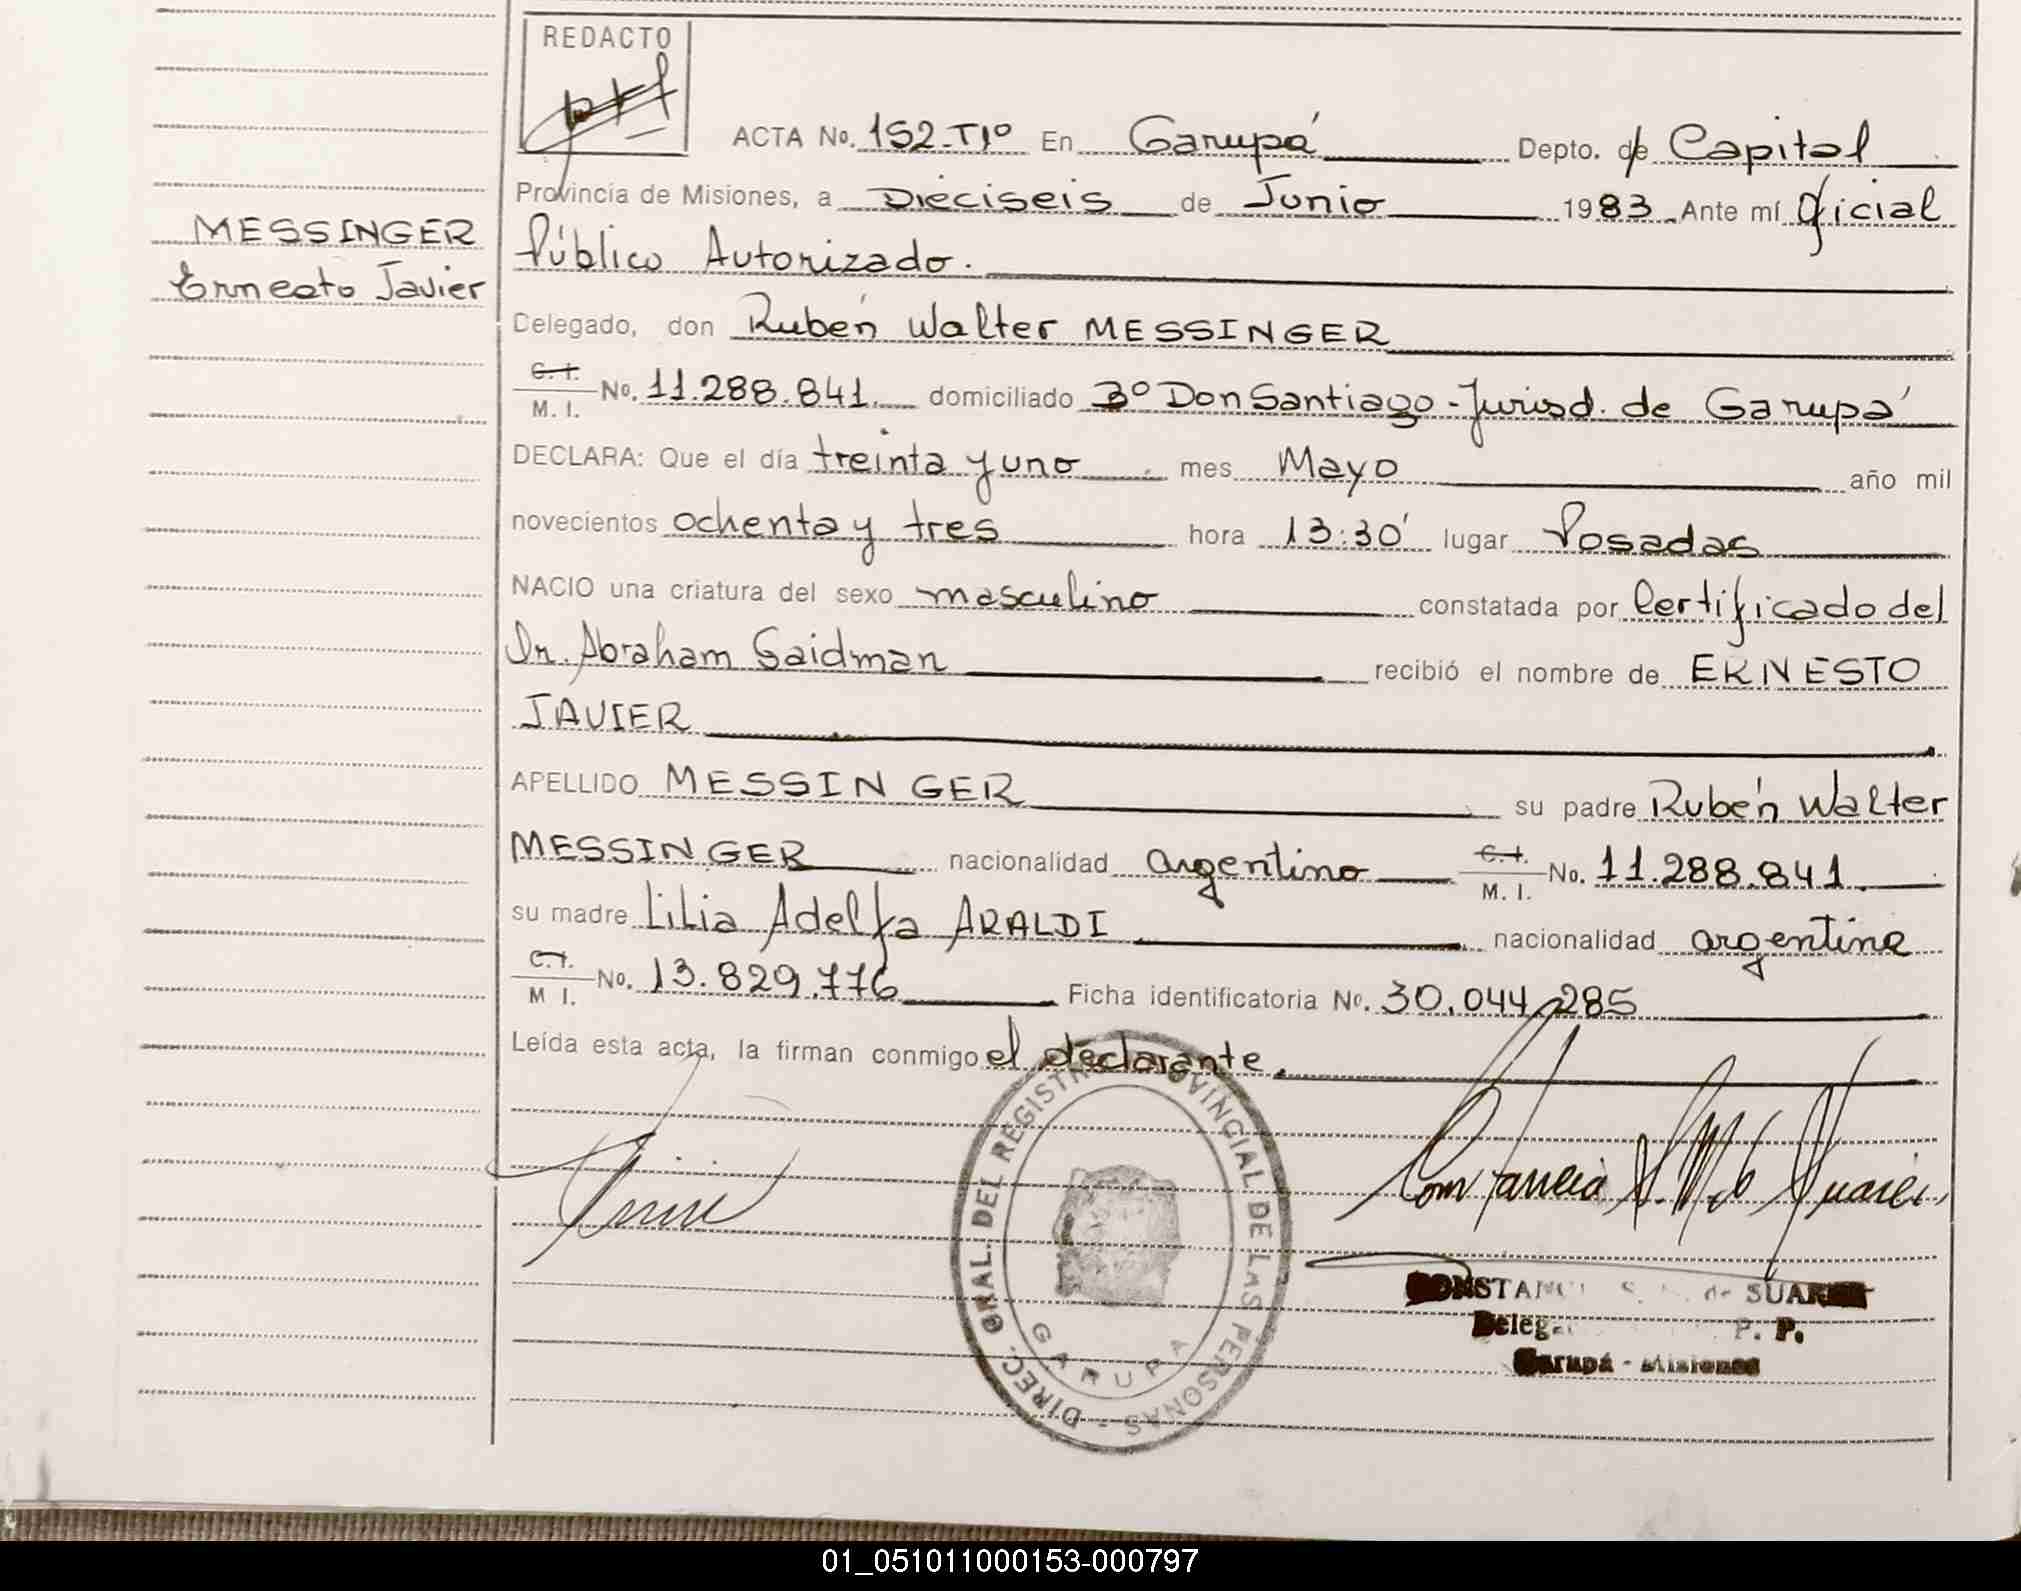 REDACTO
ACTA No. 152-Tº1º En Garupá Depto. de Capital
Provincia de Misiones, a Dieciseis de Junio 1983 Ante mí Oficial
MESSINGER
Público Autorizado.
Ernesto Javier
Delegado, don Rubén Walter MESSINGER
C. I.
M. I. No. 11.288.841. domiciliado Bº Don Santiago - Jurisd. de Garupá
DECLARA: Que el día treinta y uno mes Mayo año mil
novecientos ochenta y tres hora 13:30' lugar Posadas
NACIO una criatura del sexo masculino constatada por Certificado del
Dr. Abraham Saidman recibió el nombre de ERNESTO
JAVIER
APELLIDO MESSINGER su padre Rubén Walter
MESSINGER nacionalidad argentino C. I. M. I. No. 11.288.841.
su madre Lilia Adelfa ARALDI nacionalidad argentina
C. I.
M I. No. 13.829.776 Ficha identificatoria No. 30.044.285
Leída esta acta, la firman conmigo el declarante.
DIREC. GRAL. DEL REGISTRO PROVINCIAL DE LAS PERSONAS -
GARUPA
Constancia S. M. de Suarez
CONSTANCIA S. de SUAREZ
Deleg P. P.
Garupá - Misiones
01_051011000153-000797